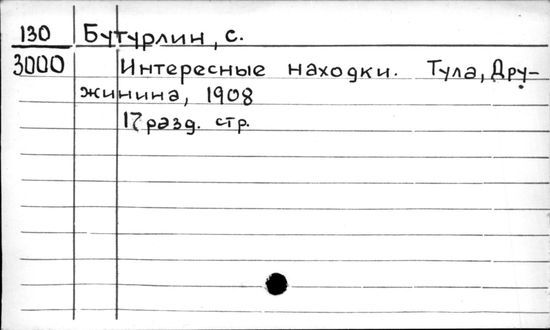 130 Бутурлин, с.
3000 Интересные находки. Тула, Дру-
жинина, 1908
17 разд. стр.